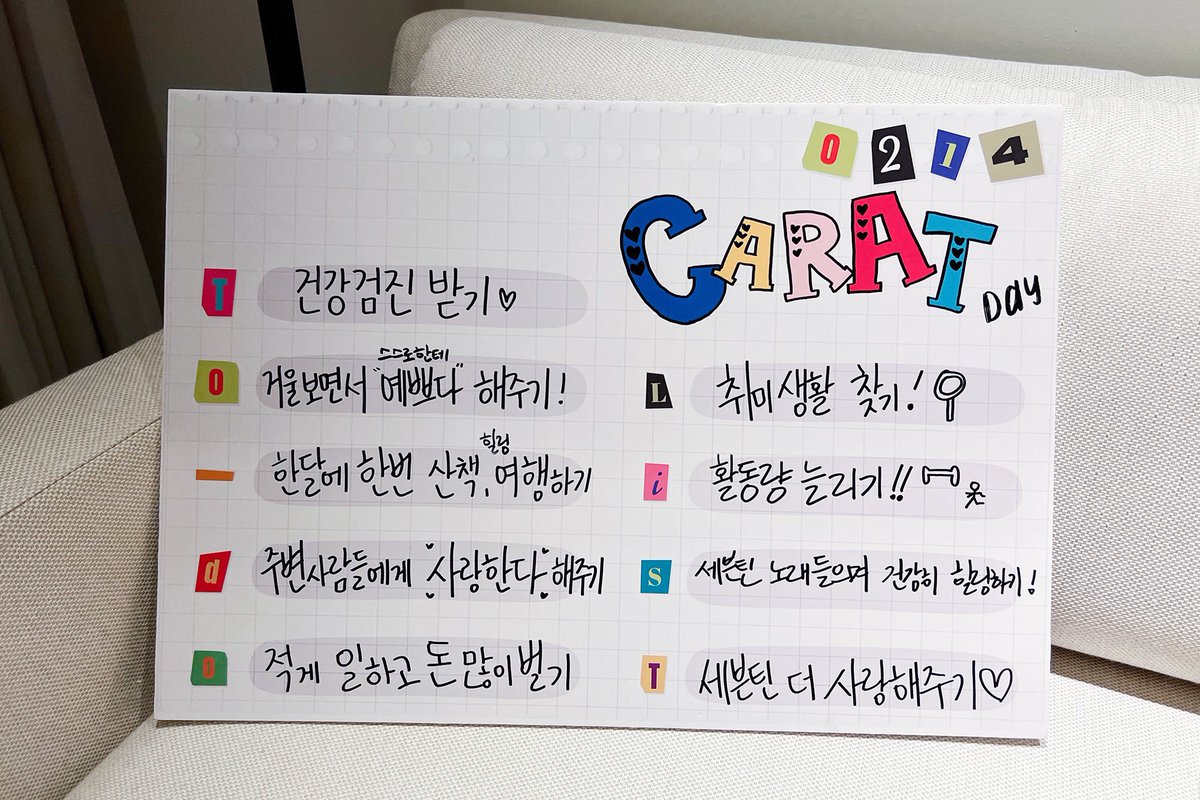 0214
CARAT
Day
T 건강검진 받기♡
스스로한테
O 거울보면서 "예쁘다" 해주기!
힐링
- 한달에 한번 산책, 여행하기
d 주변사람들에게 사랑한다 해주기
O 적게 일하고 돈 많이 벌기
L 취미생활 찾기!
i 활동량 늘리기!!
S 세븐틴 노래들으며 건강히 힐링하기!
T 세븐틴 더 사랑해주기♡